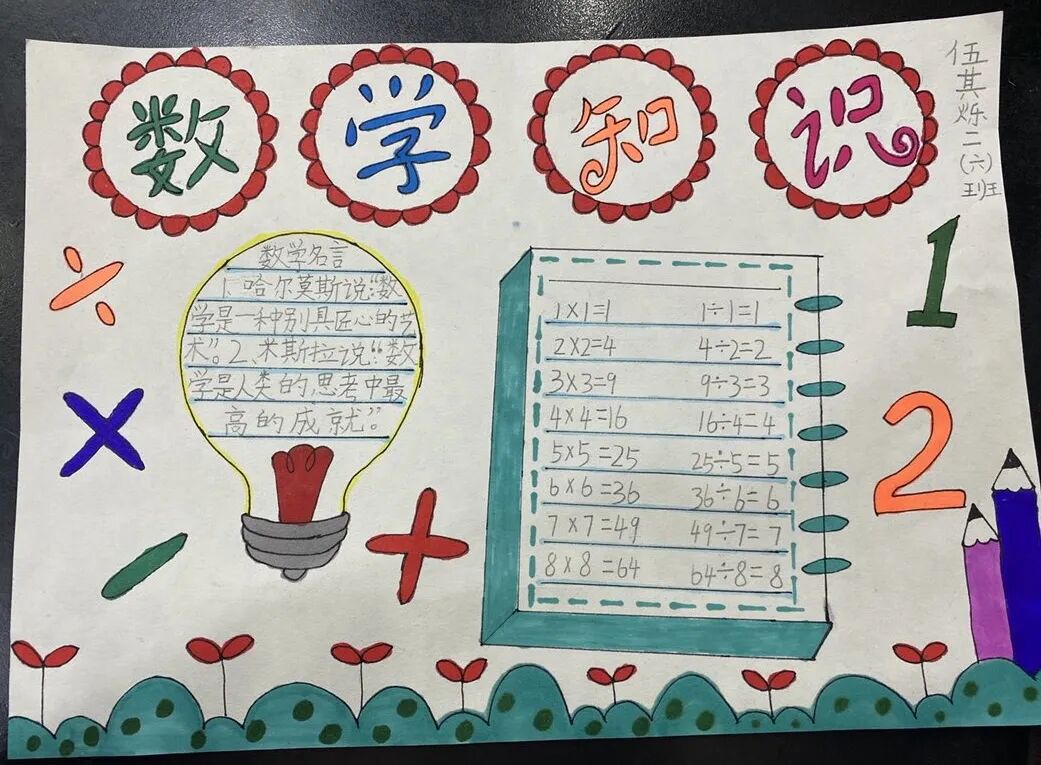 数学知识
伍其烁二(六)班
数学名言
1、哈尔莫斯说:“数
学是一种别具匠心的艺
术”。2、米斯拉说:“数
学是人类的思考中最
高的成就”。
1×1=1 1÷1=1
2×2=4 4÷2=2
3×3=9 9÷3=3
4×4=16 16÷4=4
5×5=25 25÷5=5
6×6=36 36÷6=6
7×7=49 49÷7=7
8×8=64 64÷8=8
÷
×
-
+
1
2